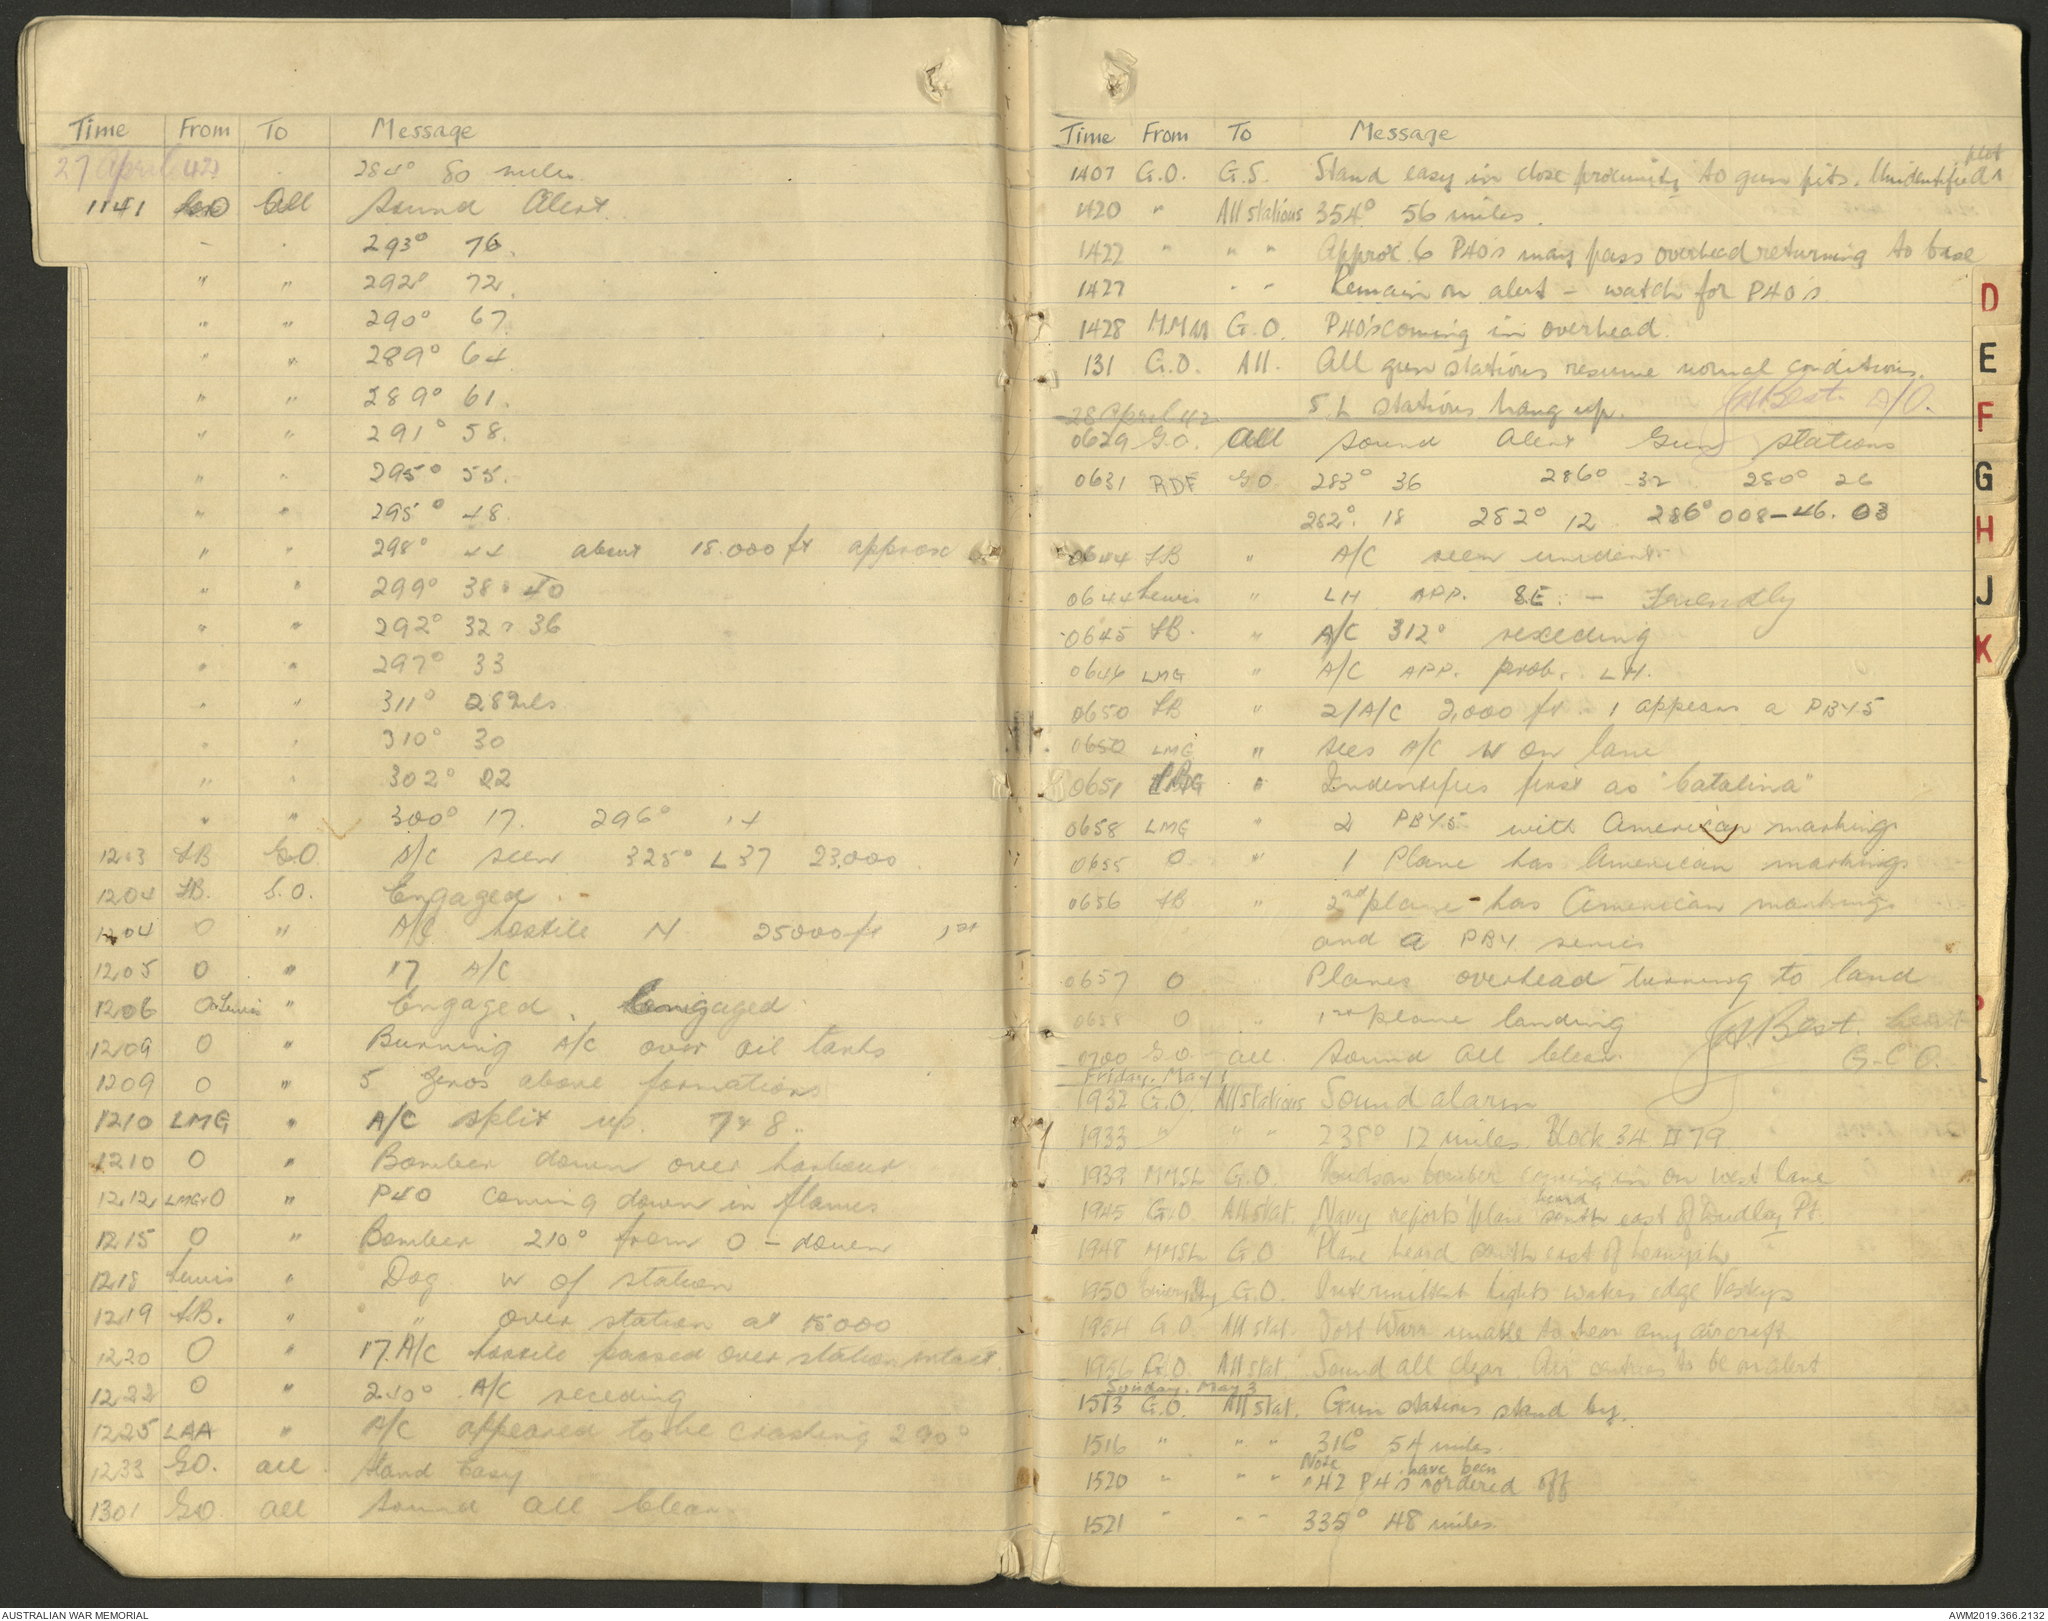 Time From To Message
27 April 42 284° 80 miles.
1141 GO All Sound Alert.
293° 76.
" " 292° 72.
" " 290° 67
" " 289° 64
" " 289° 61.
" " 291° 58.
" " 295° 55.
" " 295° 48.
" " 298° 44 about 18.000 ft approx
" " 299° 38 40
" " 292° 32 36
" " 297° 33
" " 311° 28 mls
" " 310° 30
" " 302° 22
" " 300° 17. 296° 14
1203 LB GO A/C seen 325° L 37 23,000
1204 LB. G.O. Engaged.
1204 O " A/C hostile N 25000 ft 1st
1205 O " 17 A/C
1206 O Lewis " Engaged. Engaged.
1209 O " Burning A/C over oil tanks
1209 O " 5 Zeros above formations
1210 LMG " A/C split up. 7 & 8.
1210 O " Bomber down over harbour
1212 LMG O " P40 coming down in flames
1215 O " Bomber 210° from O - down
1218 Lewis " Dog W of station
1219 LB. " " over station at 15000
1220 O " 17. A/C hostile passed over station intact.
1222 O " 240° A/C receding
1225 LAA " A/C appeared to be crashing 290°
1233 GO. all Stand Easy
1301 GO. all Sound all Clear.
Time From To Message
1407 G.O. G.S. Stand easy in close proximity to gun pits. Unidentified plot
1420 " All stations 354° 56 miles.
1422 " " " Approx. 6 P40's may pass overhead returning to base
1427 " " Remain on alert - watch for P40's
1428 MMM G.O. P40's coming in overhead.
131 G.O. All. All gun stations resume normal conditions.
S.L stations hang up. Best. A/O.
28 April 42
0629 G.O. All Sound Alert Gun stations
0631 RDF GO 283° 36 286° 32 280° 26
282°. 18 282° 12 286° 008-46. 03
0644 LB " A/C seen unident.
0644 Lewis " LH APP. SE. - Friendly
0645 LB. " A/C 312° receding
0646 LMG " A/C APP. prob. LH.
0650 LB " 2/A/C 2,000 ft. 1 appears a PBY5
0650 LMG " sees A/C W on lane
0651 LMG " Indentifies first as "Catalina"
0658 LMG " 2 PBY.5 with American markings
0655 O " 1 Plane has American markings
0656 LB " 2nd plane - has American markings
and a PBY series
0657 O " Planes overhead turning to land
0658 O " 1st plane landing
0700 G.O. - all. Sound All Clear. Best.
G.C.O.
Friday. May 1
1932 G.O. All stations Sound alarm
1933 " " " 235° 12 miles. Block 34 79
1939 MMSL G.O. Hudson bomber coming in on west lane
1945 G.O. All stat. Navy reports plane heard south east of Dudley Pt.
1948 MMSL G.O. Plane heard south east of
1950 G.O. Intermittent lights waters edge Vesteys
1954 G.O. All stat. Port War unable to hear any aircraft
1956 G.O. All stat Sound all clear. Air centries to be on alert
Sunday. May 3
1513 G.O. All stat. Gun stations stand by.
1516 " " " 316° 54 miles.
1520 " " " Note 42 P40s have been ordered off
1521 " " " 335° 48 miles.
D
E
F
G
H
J
K
AUSTRALIAN WAR MEMORIAL
AWM2019.366.2132